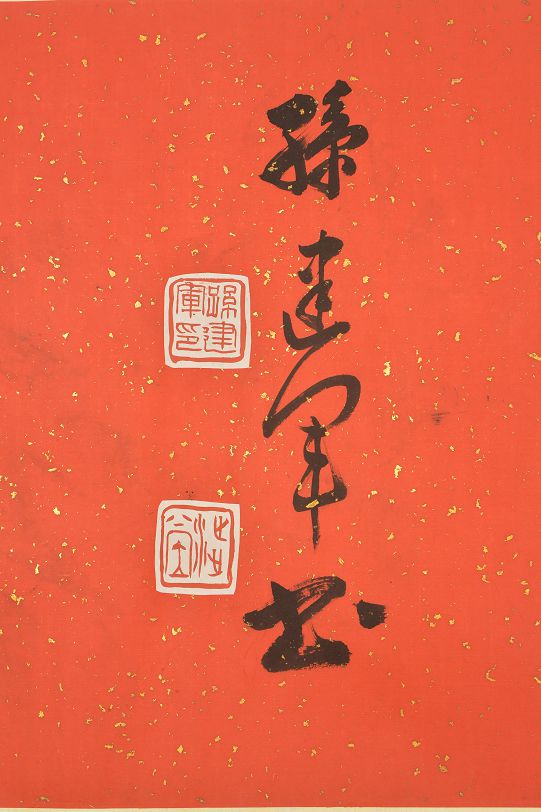 孫建军书
孫建軍印